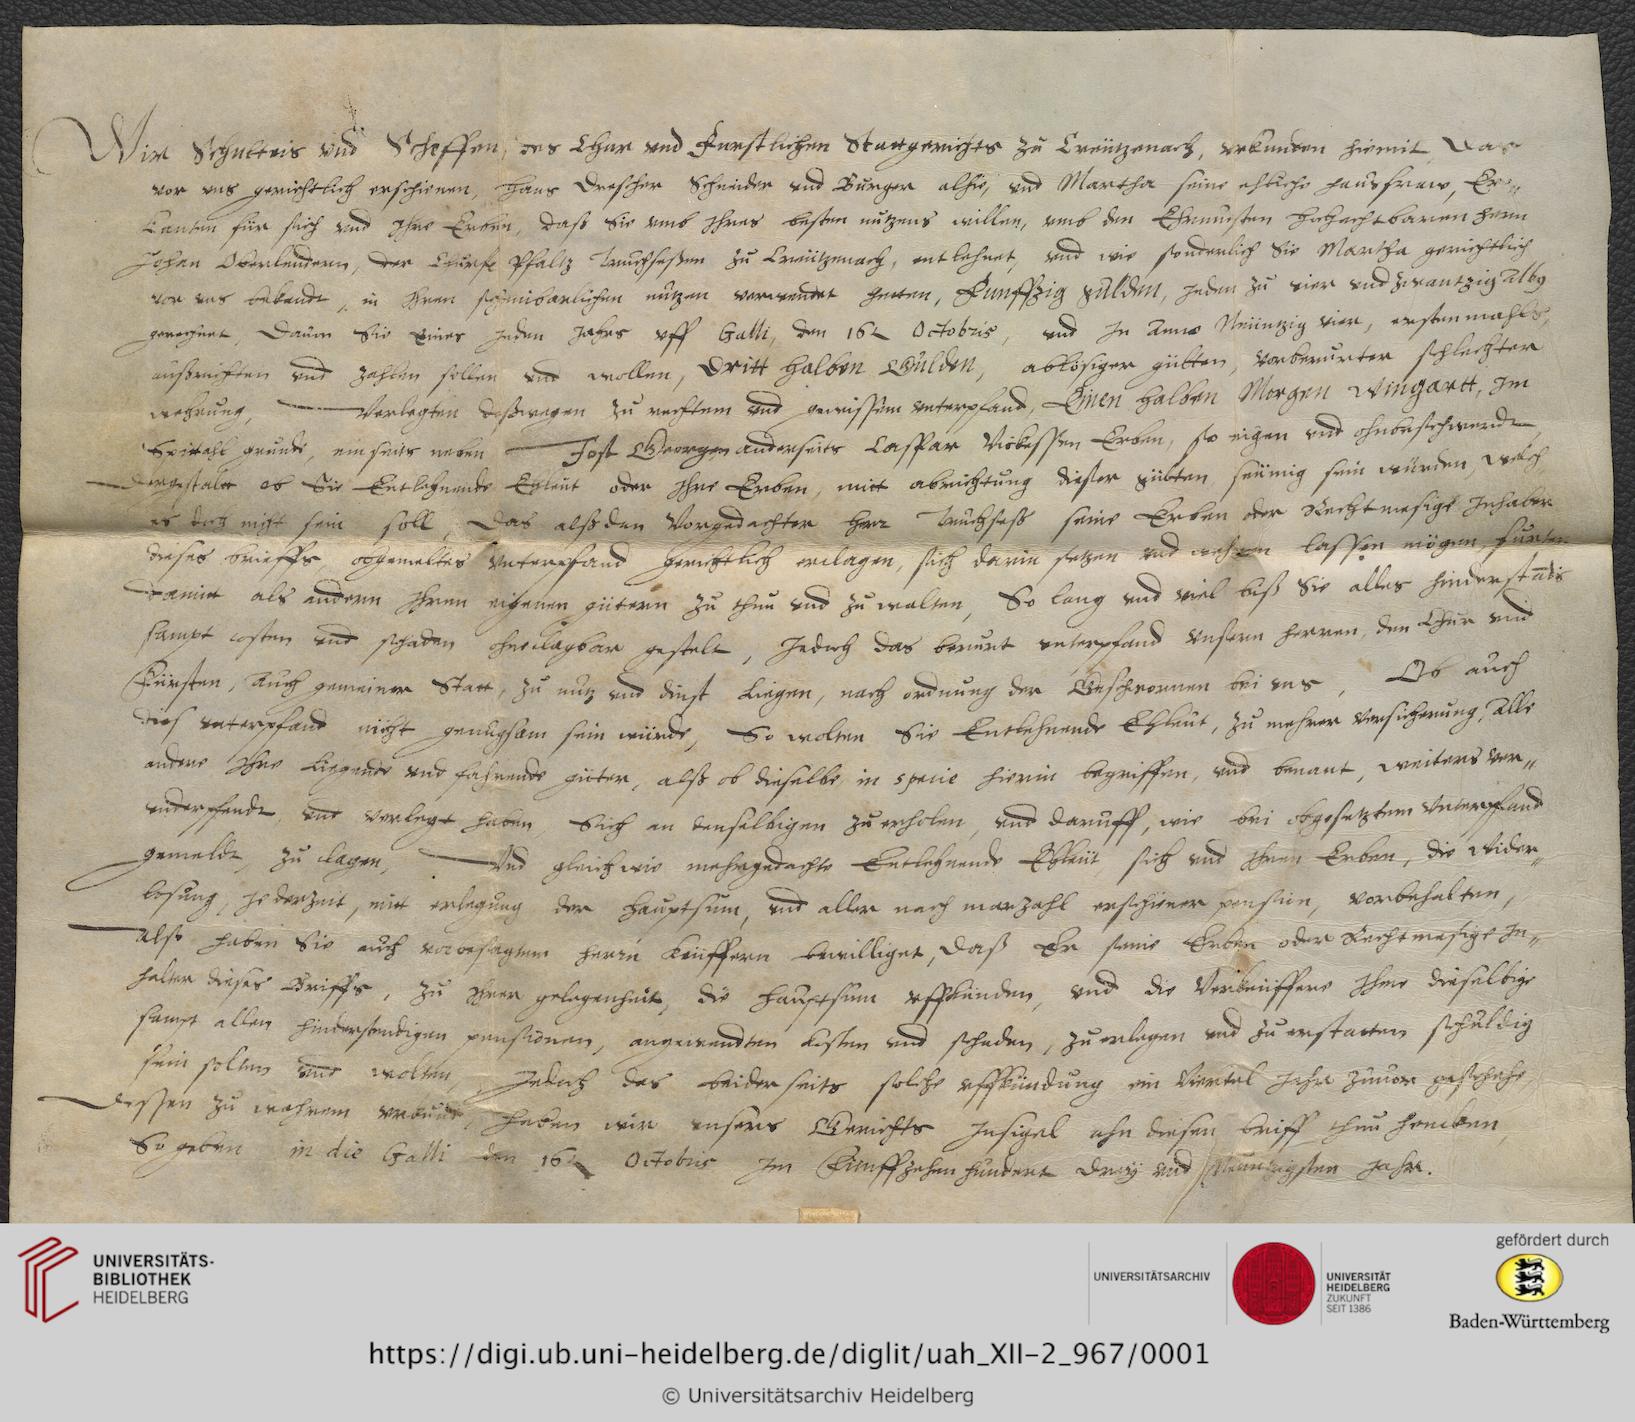 Wir Schulteis vnd Scheffen, des Chur vnd Furstlichen Stattgerichts zu Creutzenach, vrkunden hiemit, Das
vor vns gerichtlich erschienen, Hans Drescher Schneider vnd Burger alhie, vnd Martha seine ehliche hausfraw, Er-
kanten für sich vnd Ihre Erben, daß Sie vmb Ihres besten nutzens willen, vmb den Ehrnuesten hochachtbaren herrn
Johan Oberlendern, der Churf. Pfaltz Truchsessen zu Creutzenach, entlehnet, vnd wie sonderlich Sie Martha gerichtlich
vor vns bekandt, in Ihren scheinbarlichen nutzen verwendet hetten, Funffzig gulden, Jeden zu vier vnd zwantzig alby
gerechnet, Dauon Sie eines Jeden Jahrs vff Galli, den 16t Octobris, vnd In Anno Neuntzig vier, ersten mahls,
außrichten vnd zahlen sollen vnd wollen, dritt halben Gulden, ablösiger gülten, vorberurter schlechter
wehrung, Verlegten deßwegen zu rechtem vnd gewissem vnterpfand, Einen halben Morgen Wingartt, Im
Spittahl grunde, einseits neben Jost Georgen anderseits Caspar Erben, so eigen vnd ohnbeschwerdt,
Dergestalt ob Sie Entlehnende Ehleut oder Ihre Erben, mitt abrichtung dieser gülten seumig sein würden, welch
es doch nicht sein soll, Das alßdan Vorgedachter herr Truchseß seine Erben oder Rechtmesige Inhaber
dieses brieffs, obgemeltes vnterpfand gerichtlich erclagen, sich darin setzen vnd lassen mögen, furter
damitt als andern Ihren eigenen gütern zu thun vnd zu walten, So lang vnd viel biß Sie alles hinderstands
sampt costen vnd schaden ohnclagbar gestelt, Jedoch das berurt vnterpfand vnsern herren, den Chur vnd
Fürsten, Auch gemeiner Statt, zu nutz vnd dinst liegen, nach ordnung der Geschwornen bei vns, Ob auch
dies vnterpfand nicht genugsam sein würde, So wolten Sie Entlehnende Ehleut, zu mehrer versicherung, Alle
andere Ihre liegende vnd fahrende güter, alß ob dieselbe in specie hierin begriffen, vnd benant, weiters ver-
vnderpfendt, vnd verlegt haben, Sich an denselbigen zu erholen, vnd daruff, wie bei obgesetztem Vnterpfand
gemeldt, zu clagen, Vnd gleich wie mehrgedachte Entlehnende Ehleut, sich vnd Ihren Erben, die wider-
losung, Jederzeit, mitt erlegung der haubtsum, vnd aller nach marzahl erschiener pension, vorbehalten,
Also haben Sie auch vorbesagtem herrn Keuffern bewilliget, daß Er seine Erben oder Rechtmesige In-
halter dieses Briffs, zu Ihrer gelegenheit, die haubtsum vffkünden, vnd die Verkeuffere Ihme dieselbige
sampt allen hinderstendigen pensionen, angewendten kosten vnd schaden, zu erlegen vnd zu erstatten schuldig
sein solten vnd wolten, Jedoch das beiderseits solche vffkündung ein Viertel Jahr zuuor geschehe
Dessen zu wahrem vrkundt, haben wir vnsers Gerichts Insigel ahn diesen briff thun hencken,
So geben in die Galli den 16t Octobris Im Funffzehenhundert drey vnd Neuntzigsten Jahr.
UNIVERSITÄTS-
BIBLIOTHEK
HEIDELBERG
UNIVERSITÄTSARCHIV
UNIVERSITÄT
HEIDELBERG
ZUKUNFT
SEIT 1386
gefördert durch
Baden-Württemberg
https://digi.ub.uni-heidelberg.de/diglit/uah_XII-2_967/0001
© Universitätsarchiv Heidelberg